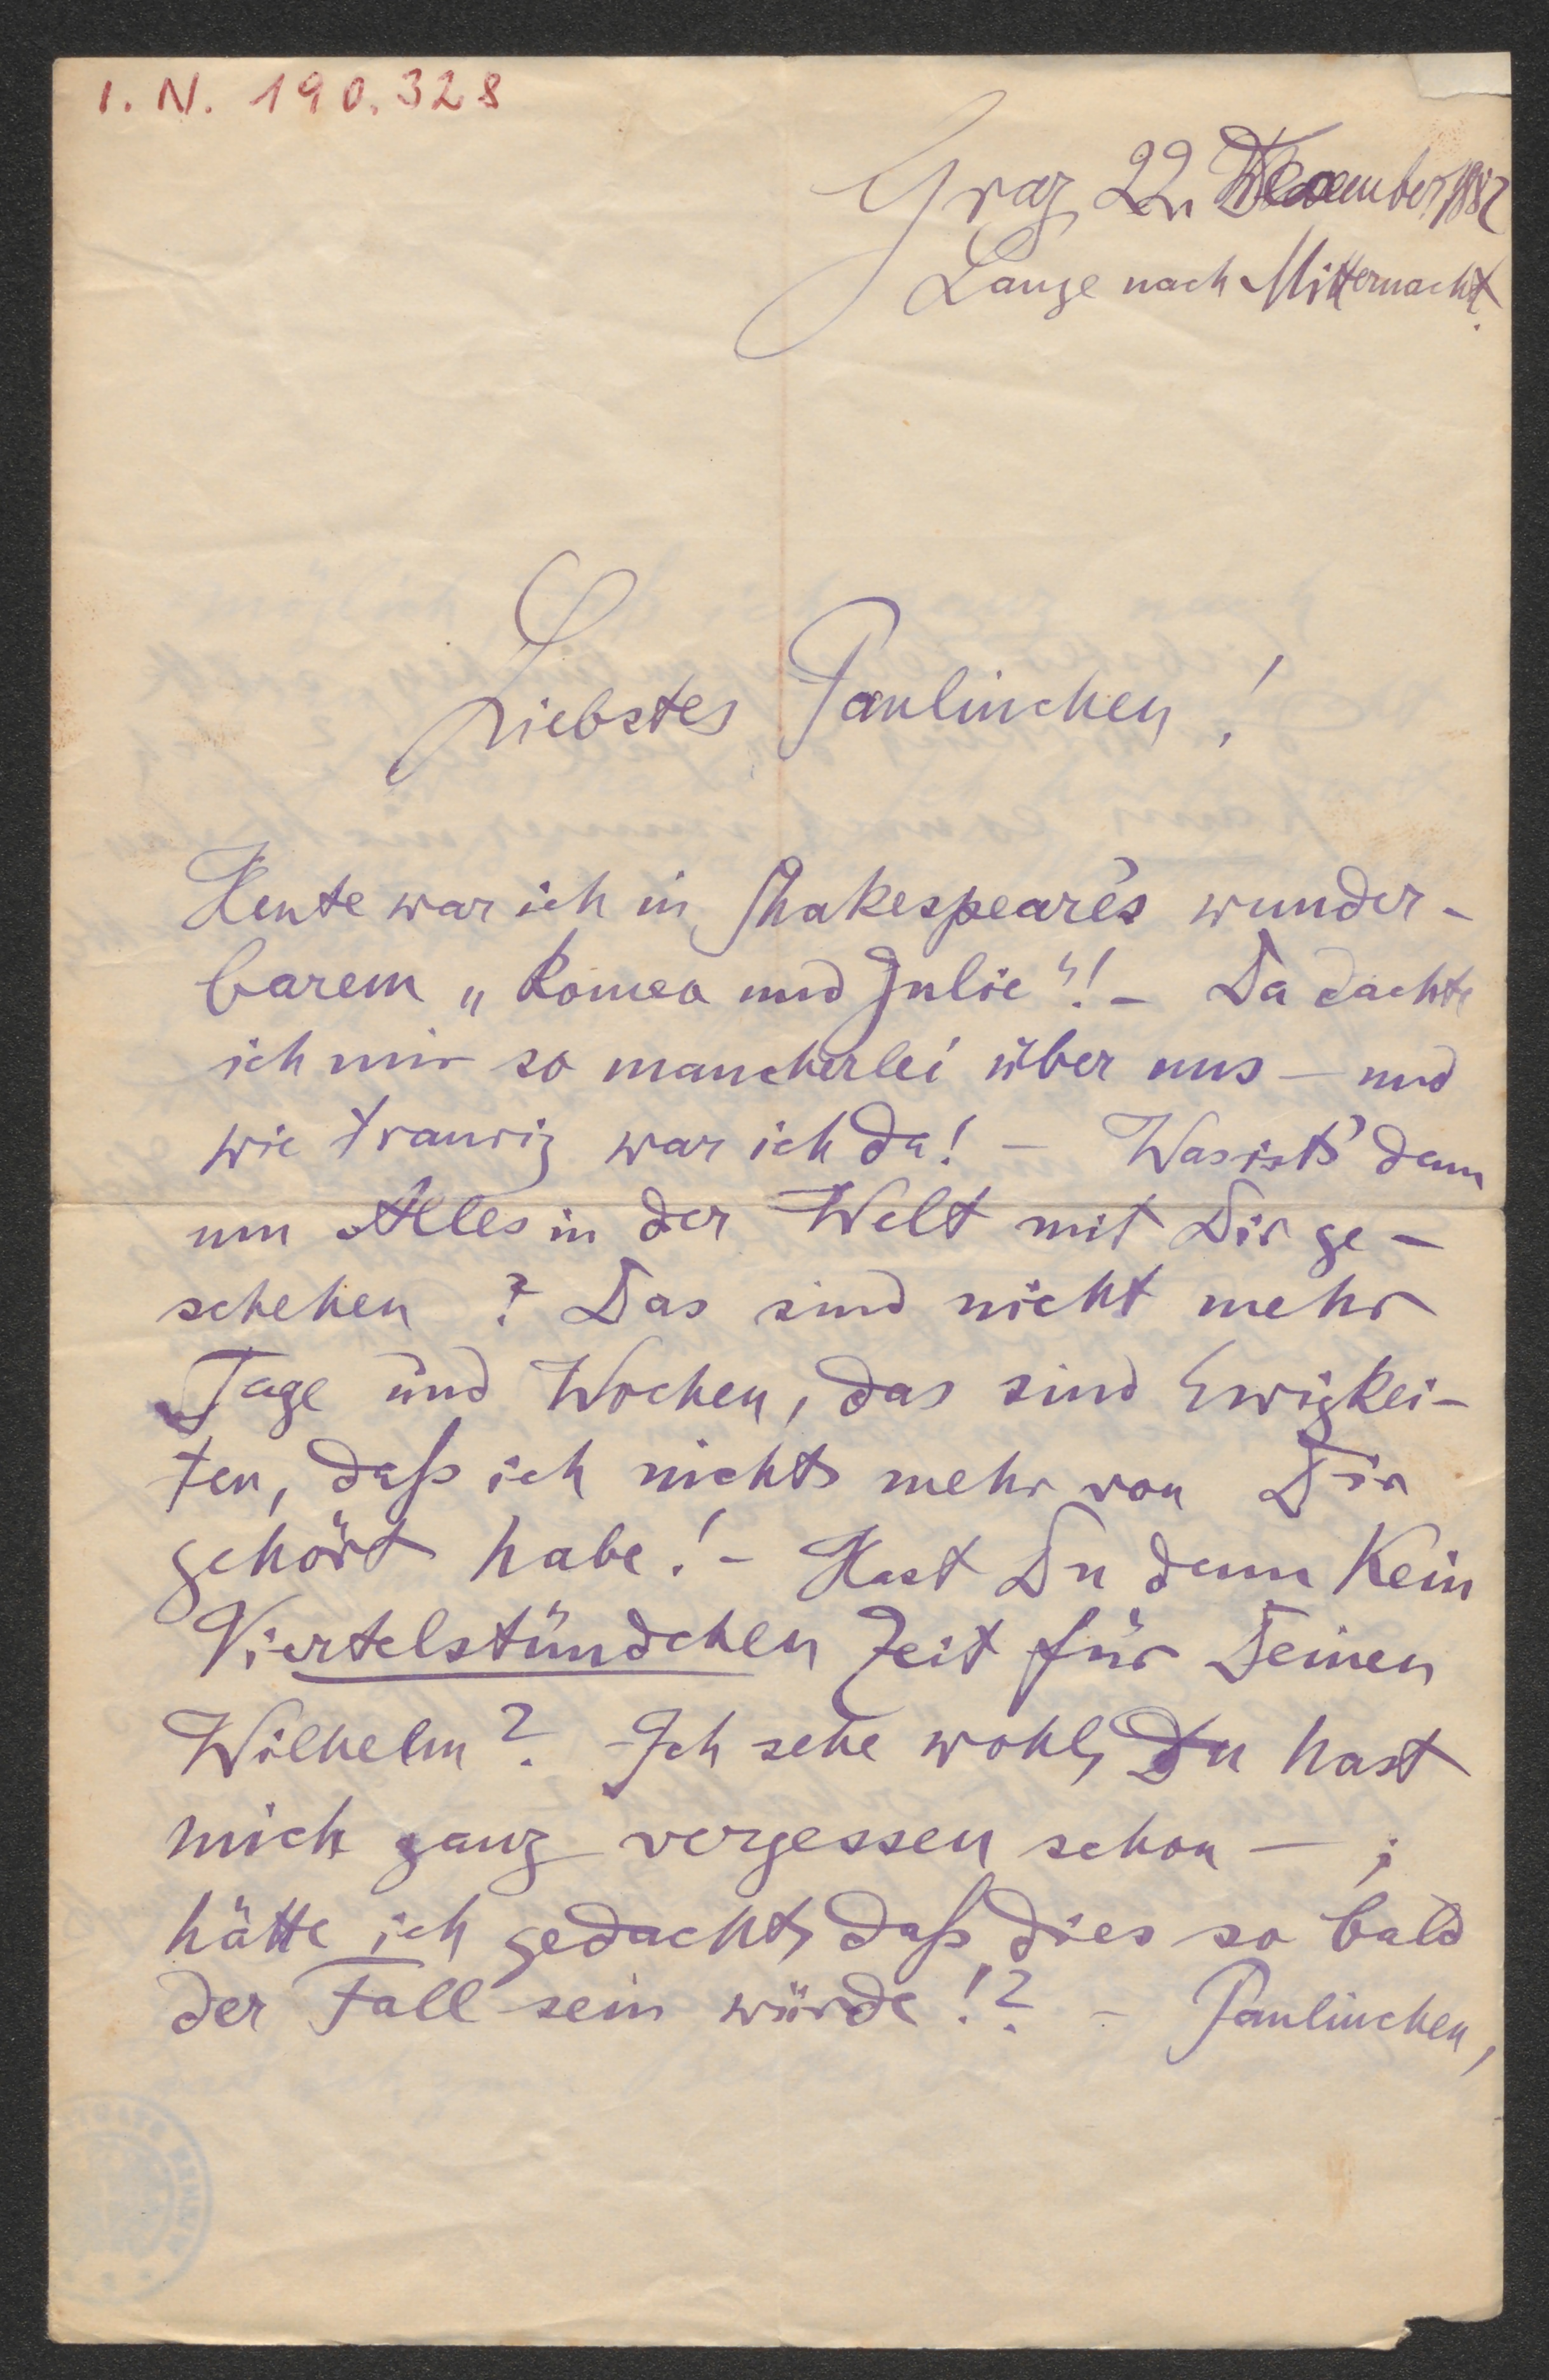 I. N. 190.328
Graz 22. Dezember 1882
Lange nach Mitternacht.
Liebstes Paulinchen!
Heute war ich in Shakespeare's wunder-
barem „Romeo und Julie"! - Da dachte
ich mir so mancherlei über uns - und
wie traurig war ich da! - Was ist's denn
um Alles in der Welt mit Dir ge-
schehen? Das sind nicht mehr
Tage und Wochen, das sind Ewigkei-
ten, daß ich nichts mehr von Dir
gehört habe! - Hast Du denn kein
Viertelstündchen Zeit für Deinen
Wilhelm? Ich sehe wohl, Du hast
mich ganz vergessen schon - ;
hätte ich gedacht, daß dies so bald
der Fall sein würde!? - Paulinchen,